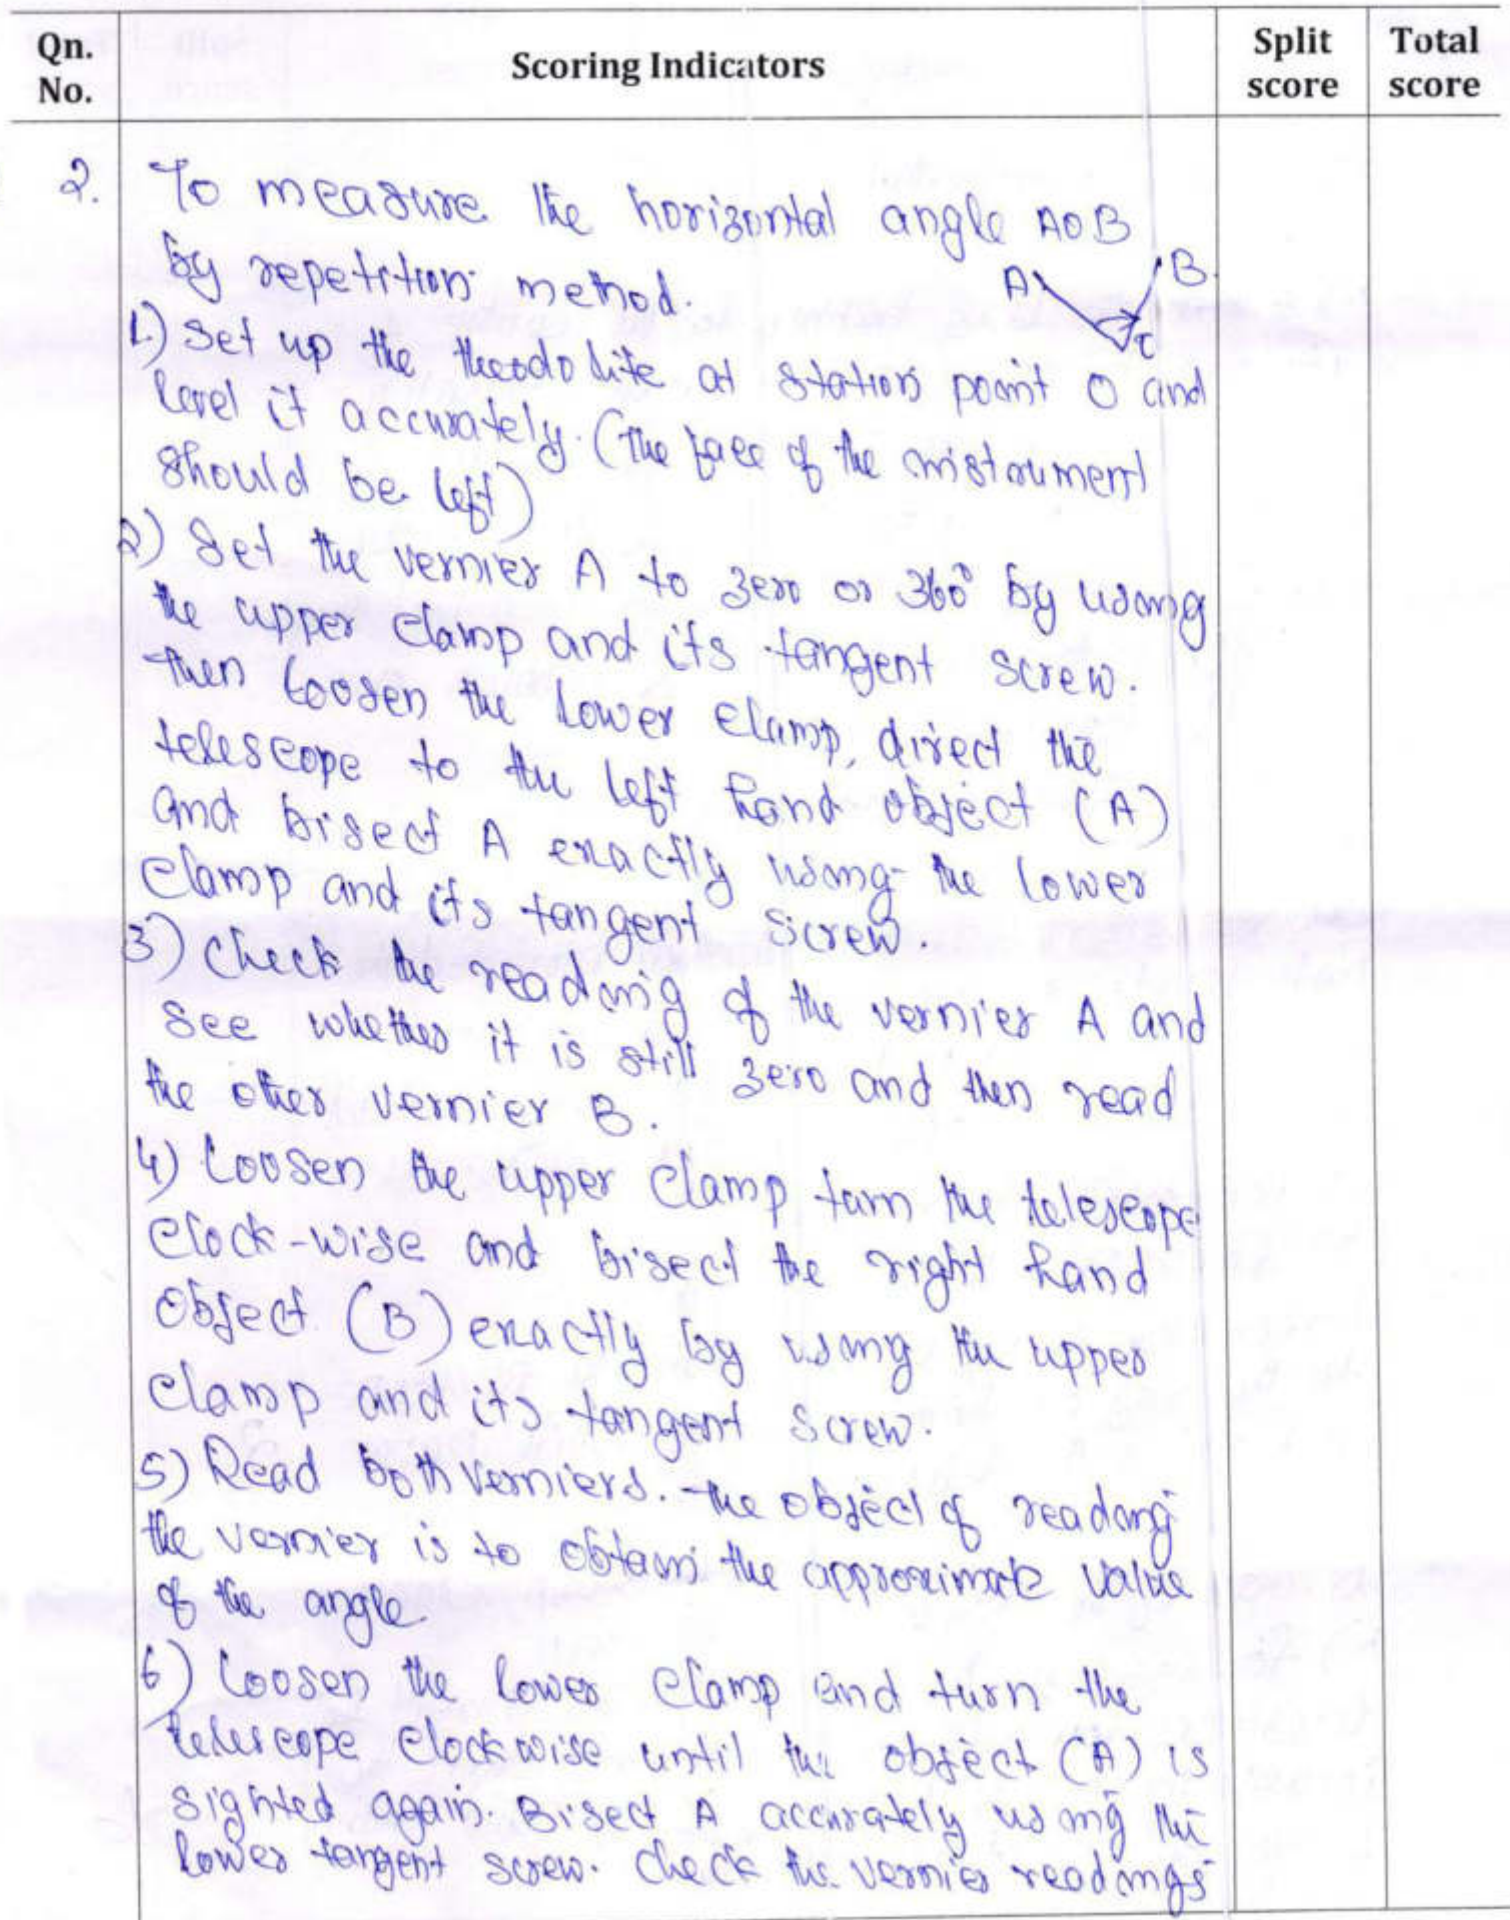 Qn. No.
Scoring Indicators
Split score
Total score
2. To measure the horizontal angle AOB
by repetition method.
A B
O
1.) Set up the theodolite at station point O and
level it accurately. (The face of the instrument
should be left)
2) Set the vernier A to zero or 360° by using
the upper clamp and its tangent screw.
Then loosen the lower clamp, direct the
telescope to the left hand object (A)
and bisect A exactly using the lower
clamp and its tangent screw.
3) Check the reading of the vernier A and
see whether it is still zero and then read
the other vernier B.
4) Loosen the upper clamp turn the telescope
clock-wise and bisect the right hand
object (B) exactly by using the upper
clamp and its tangent screw.
5) Read both verniers. The object of reading
the vernier is to obtain the approximate value
of the angle
6) Loosen the lower clamp and turn the
telescope clockwise until the object (A) is
sighted again. Bisect A accurately using the
lower tangent screw. Check the vernier readings